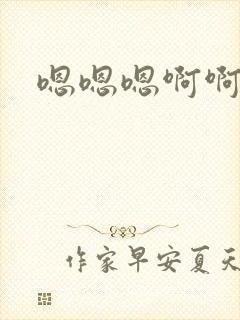 嗯嗯嗯啊啊
作家早安夏天